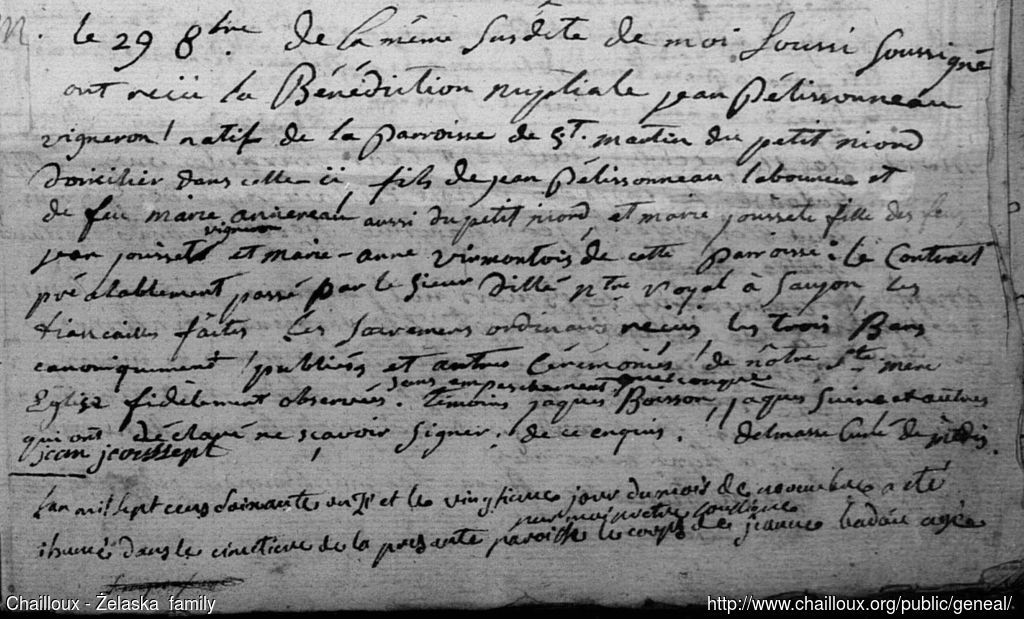 M. le 29 8bre. De la même susdite de moi soussi soussigné
ont reçu la Bénédiction nuptiale jean Pélissonneau
vigneron natif de la parroisse de St. martin du petit niord
Domicilier dans cette ci, fils de jean Pélissonneau laboureur et
de feu marie annereau aussi du petit niord, et marie joussete fille des fe
vigneron
jean jousset et marie-anne virmontois de cette parroisse: le Contract
préalablement passé par le sieur Dillé ntre royal à Saujon, les
fiancailles faites les sacremens ordinais reçus, les trois Bans
canoniquement publiés et autres Cérémonies de nôtre Ste mere
sans empeschement quelconque
Eglise fidèlement observées. Témoins jaques Boisson, jaques suire et autres
qui ont déclaré ne sçavoir signer. de ce enquis. delmasse Curé de médis.
jean jeoussept
Lan mil sept cens soixante onze et le vingtieme jour du mois de novembre a été
par moi
inhumé dans le cimetiere de la presante paroisse le corps de jeanne badaie agée
Chailloux - Żelaska family
http://www.chailloux.org/public/geneal/